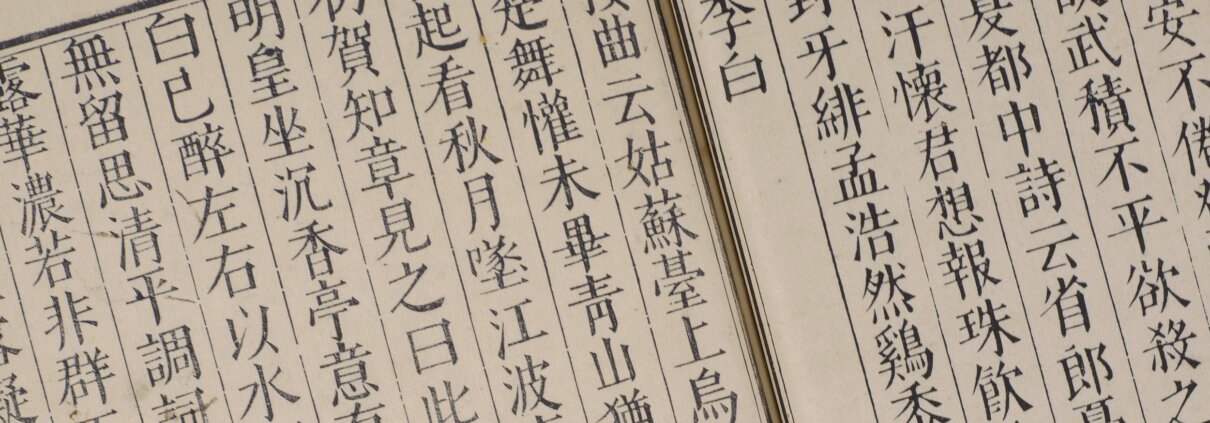 安不倦
武積不平欲殺之
夏都中詩云省郎
汗懷君想報珠飲
牙緋孟浩然鷄黍
李白
曲云姑蘇臺上烏
楚舞懽未畢靑山猶
起看秋月墜江波
初賀知章見之曰此
明皇坐沉香亭意有
白已醉左右以水
無留思清平調詞
露華濃若非群
凝